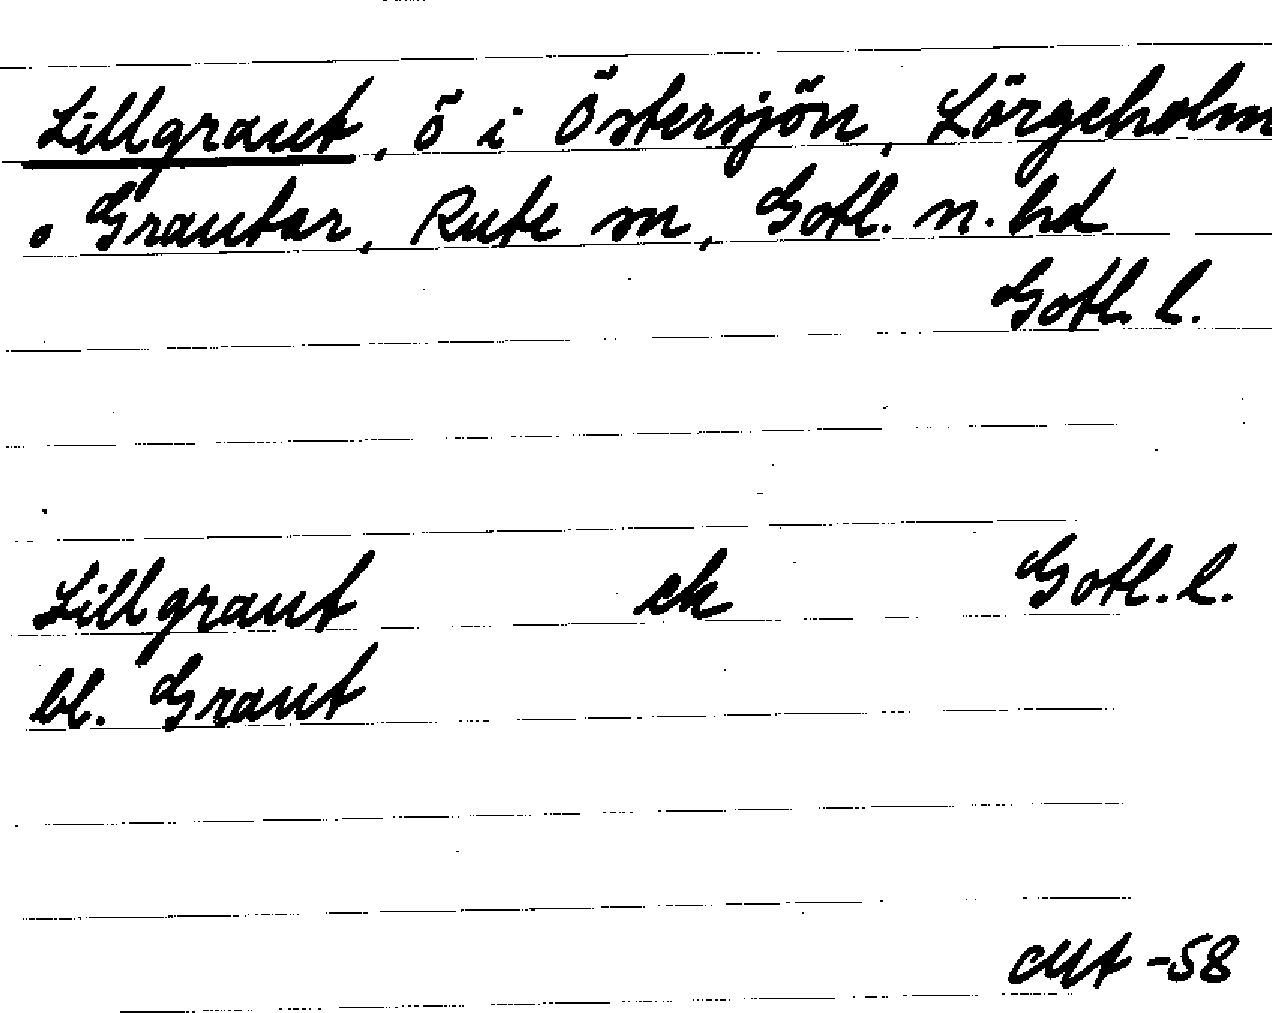 Lillgraut, ö i Östersjön, Lörgeholm
o Grautar, Rute sn, Gotl. n. hd
Gotl. l.
Lillgraut ek Gotl. l.
bl. Graut
-58